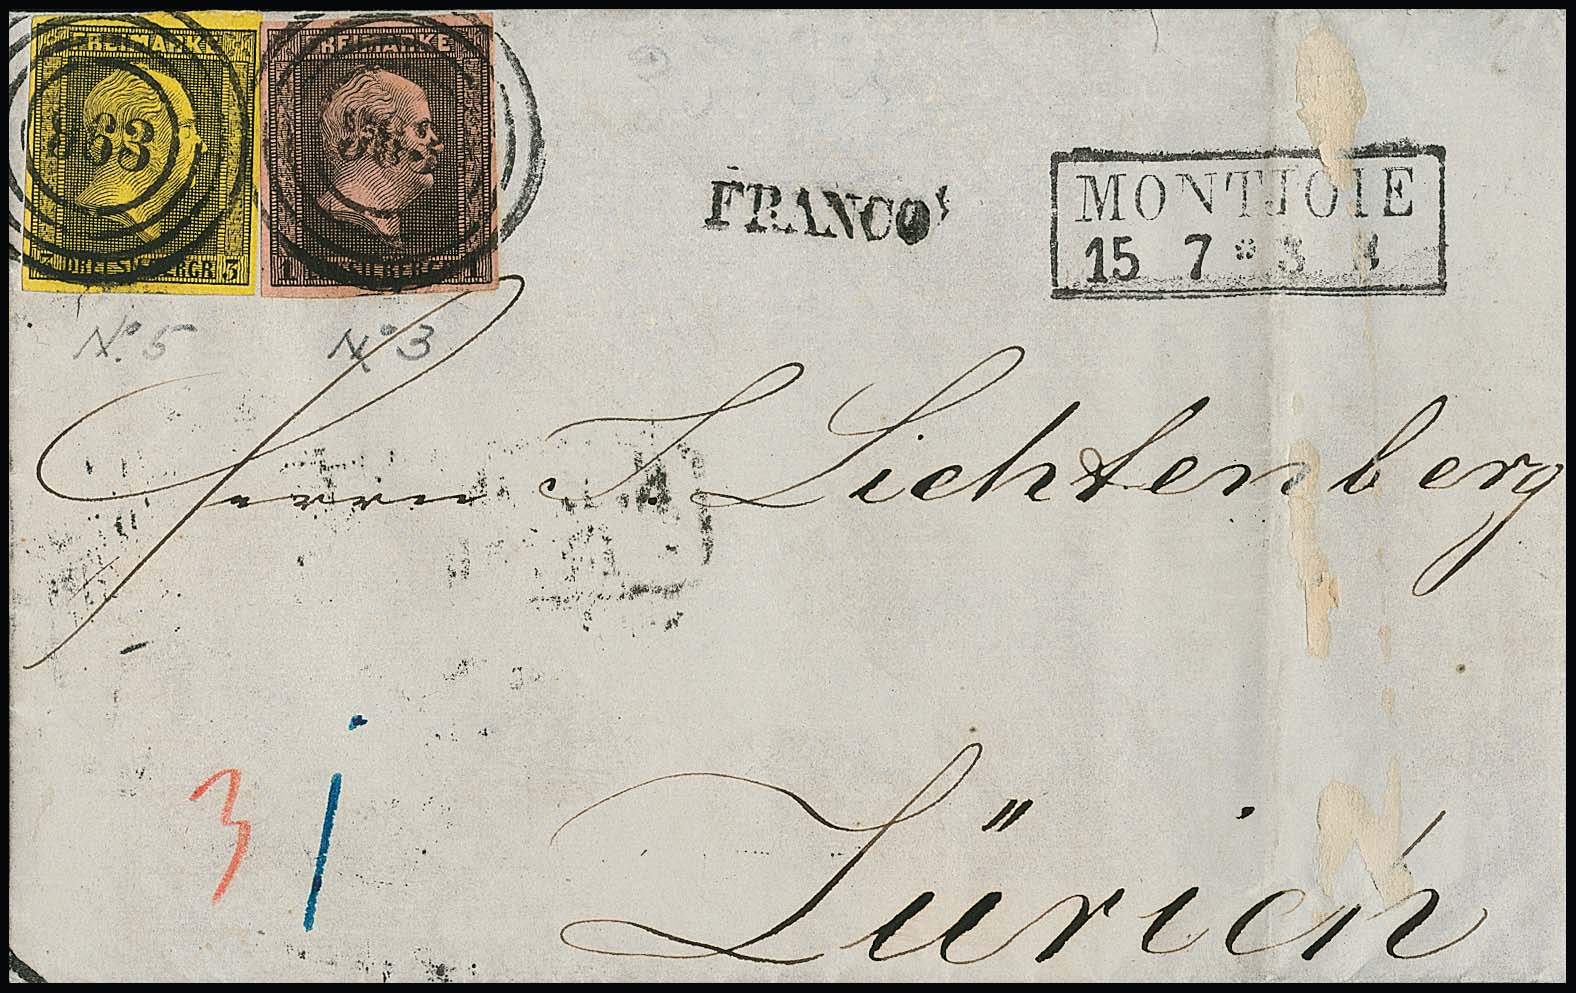 FREIMARKE
963
3 DREI SILBERGR. 3
FREIMARKE
1 SILBERGR. 1
FRANCO
MONTJOIE
15 7 * 3
No. 5
No 3
Herrn J. Lichtenberg
3 1
Zürich